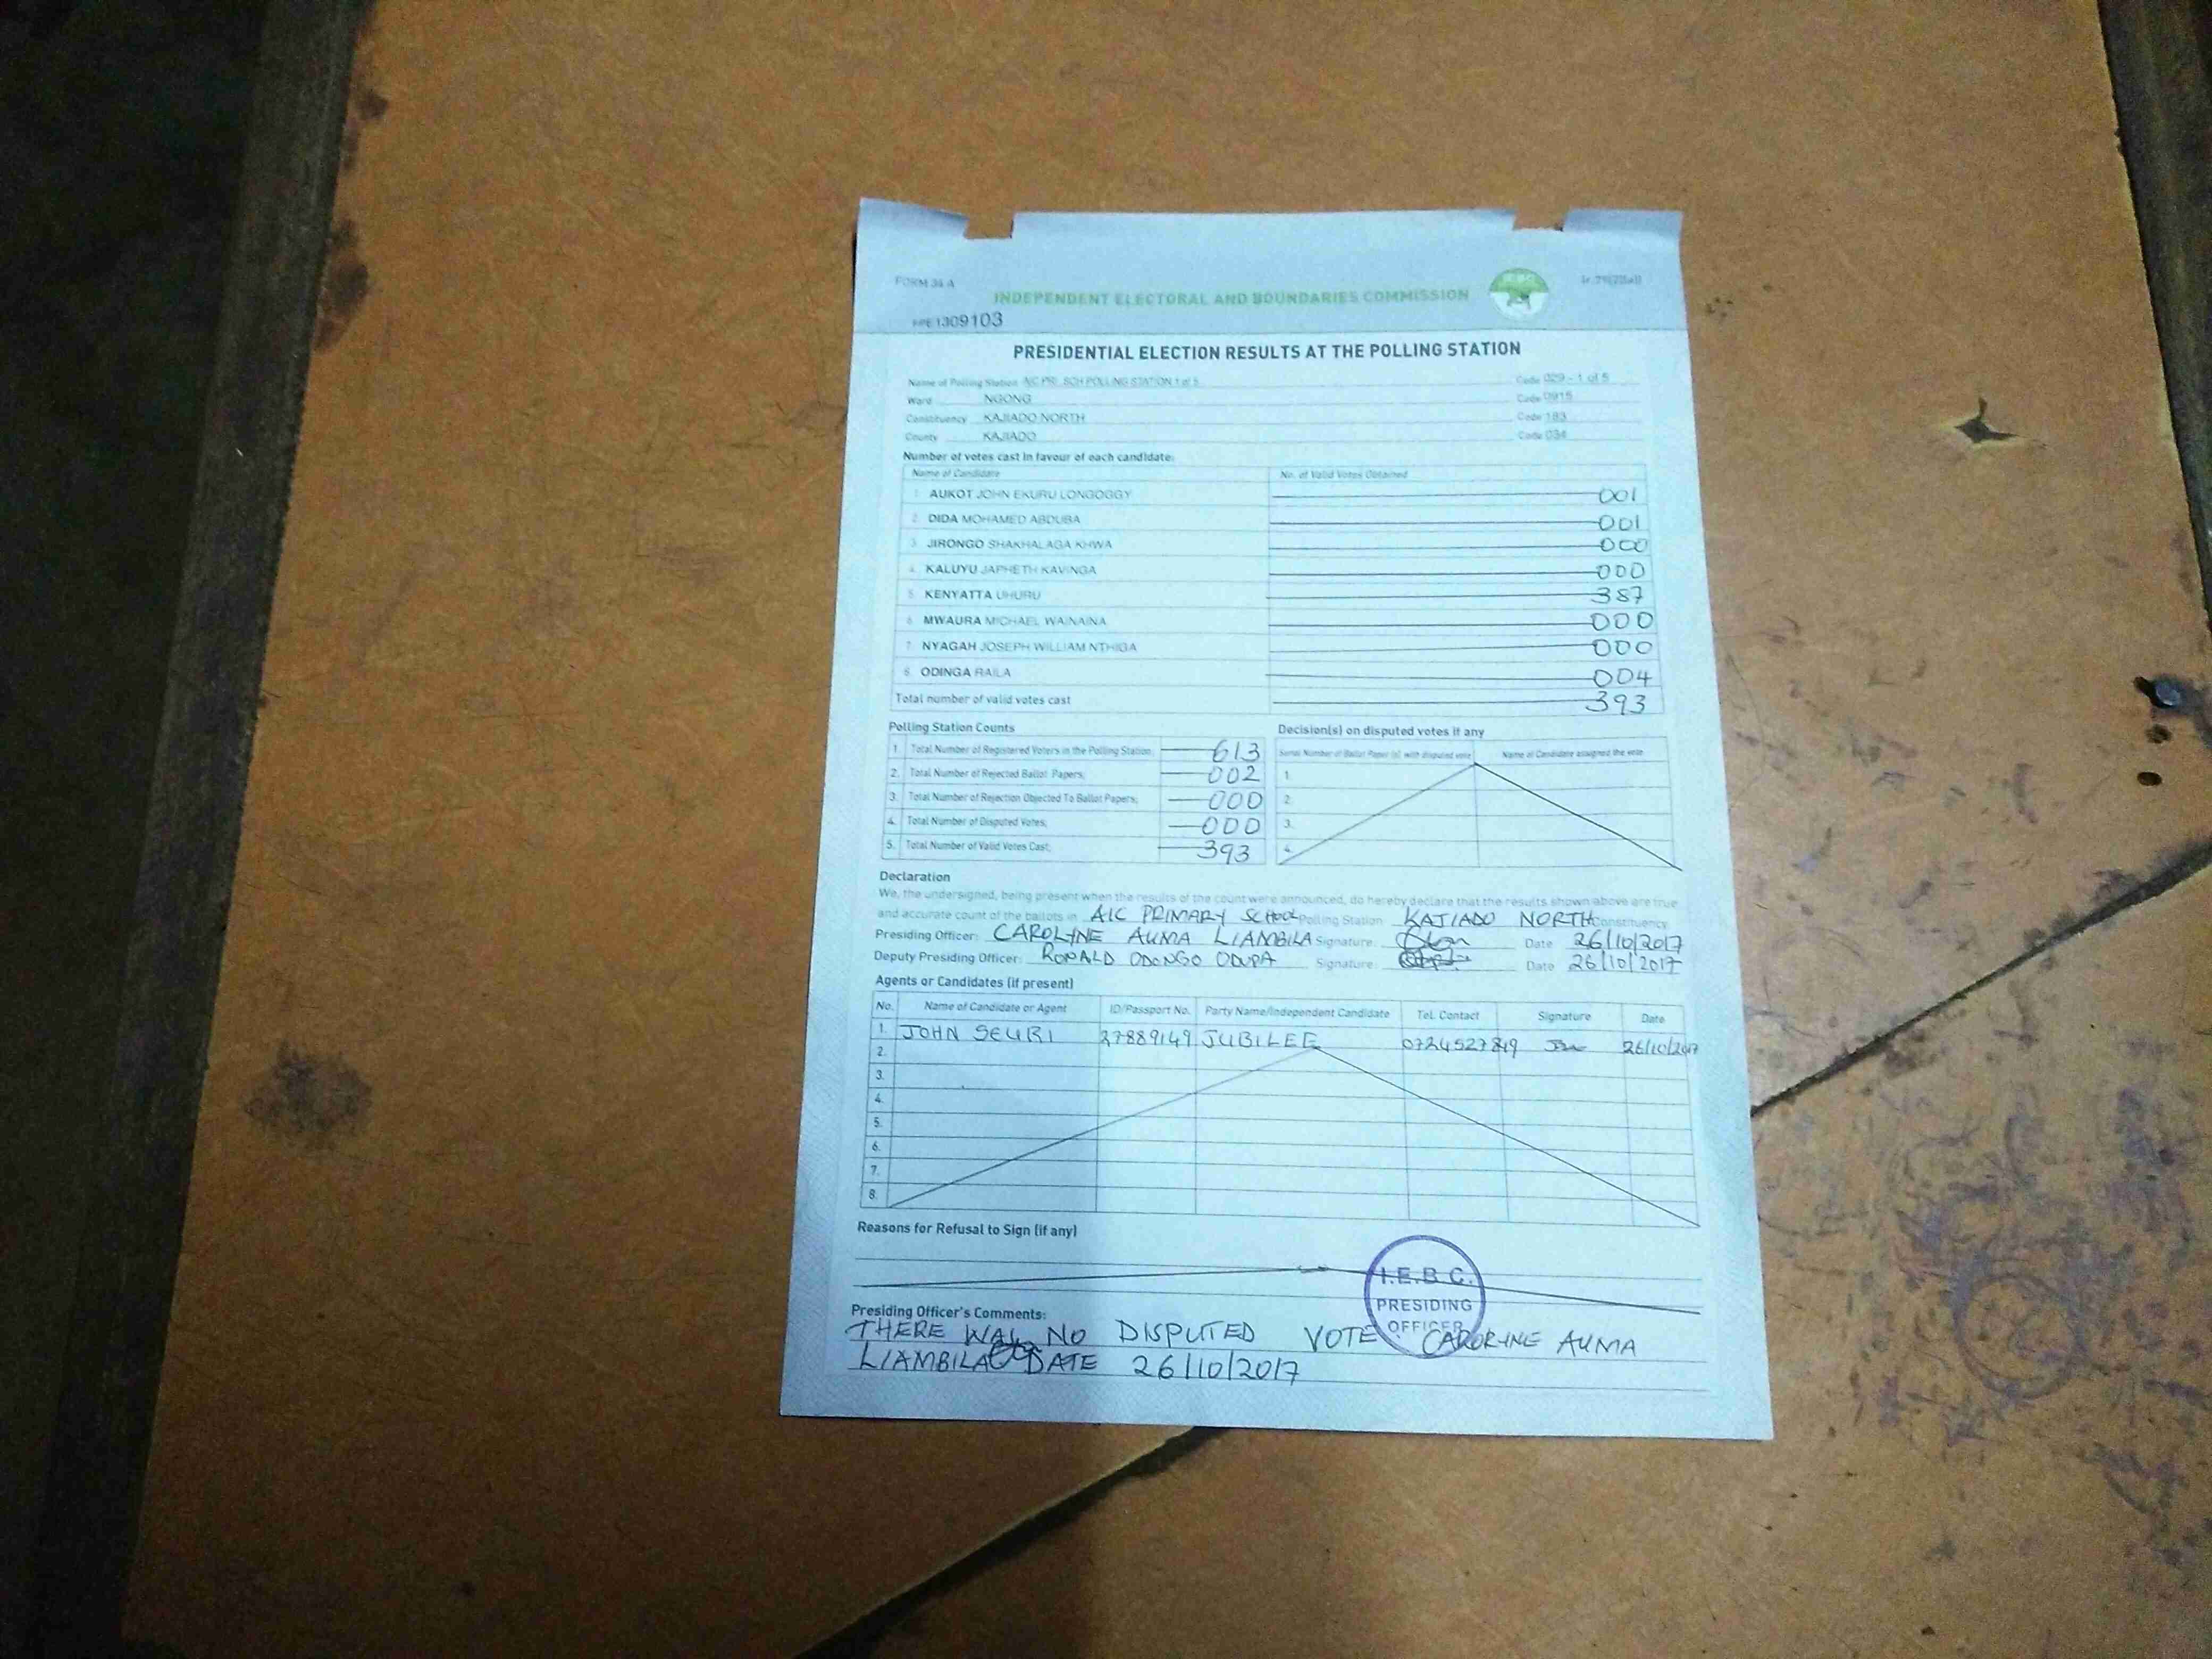 FORM 34 A
INDEPENDENT ELECTORAL AND BOUNDARIES COMMISSION
1309103
PRESIDENTIAL ELECTION RESULTS AT THE POLLING STATION
Name of Polling Station AIC PRI. SCH POLLING STATION 1 of 5 Code 029 - 1 of 5
Ward NGONG Code 0915
Constituency KAJIADO NORTH Code 183
County KAJIADO Code 034
Number of votes cast in favour of each candidate:
Name of Candidate No. of Valid Votes Obtained
1 AUKOT JOHN EKURU LONGOGGY 001
2 DIDA MOHAMED ABDUBA 001
3 JIRONGO SHAKHALAGA KHWA 000
4 KALUYU JAPHETH KAVINGA 000
5 KENYATTA UHURU 387
6 MWAURA MICHAEL WAINAINA 000
7 NYAGAH JOSEPH WILLIAM NTHIGA 000
8 ODINGA RAILA 004
Total number of valid votes cast 393
Polling Station Counts
1. Total Number of Registered Voters in the Polling Station 613
2. Total Number of Rejected Ballot Papers; 002
3. Total Number of Rejection Objected To Ballot Papers; 000
4. Total Number of Disputed Votes; 000
5. Total Number of Valid Votes Cast; 393
Decision(s) on disputed votes if any
Serial Number of Ballot Paper (s) with disputed vote Name of Candidate assigned the vote
1.
2.
3.
4.
Declaration
We, the undersigned, being present when the results of the count were announced, do hereby declare that the results shown above are true
and accurate count of the ballots in AIC PRIMARY SCHOOL Polling Station KAJIADO NORTH Constituency
Presiding Officer: CAROLYNE AUMA LIAMBILA Signature: Date 26/10/2017
Deputy Presiding Officer: RONALD ODONGO ODUPA Signature: Date 26/10/2017
Agents or Candidates (if present)
No. Name of Candidate or Agent ID/Passport No. Party Name/Independent Candidate Tel. Contact Signature Date
1. JOHN SEURI 27889149 JUBILEE 0724527849 26/10/2017
2.
3.
4.
5.
6.
7.
8.
Reasons for Refusal to Sign (if any)
I.E.B.C.
PRESIDING
OFFICER
Presiding Officer's Comments:
THERE WAS NO DISPUTED VOTE CARORINE AUMA
LIAMBILA DATE 26/10/2017